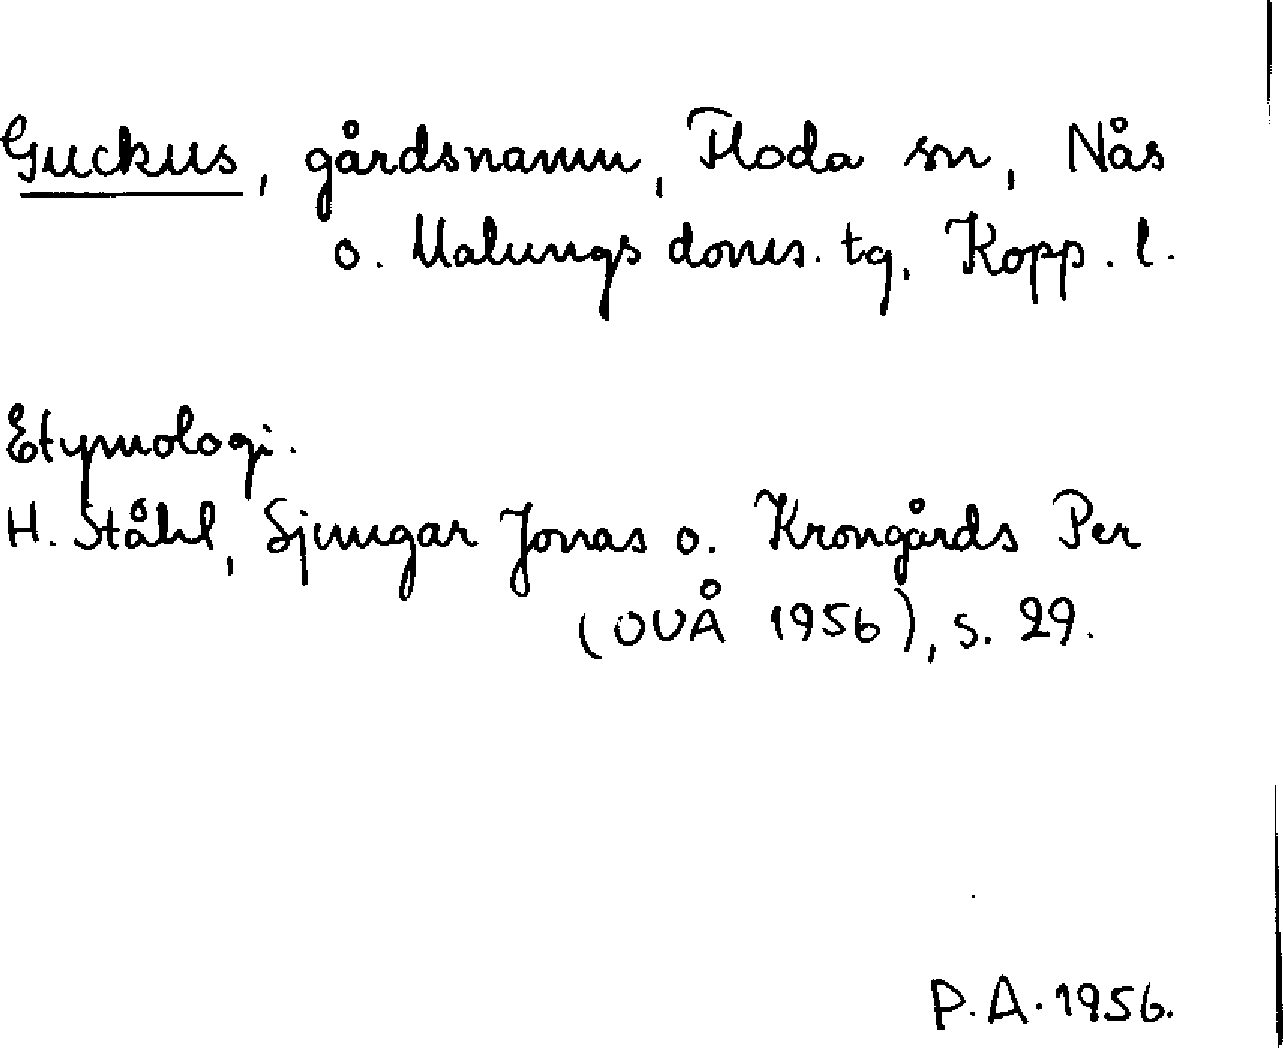 Guckus, gårdsnamn, Floda sn, Nås
o. Malungs doms. tg, Kopp. l.
Etymologi.
H. Ståhl, Sjungar Jonas o. Krongårds Per
(OUÅ 1956), s. 29.
P.A. 1956.